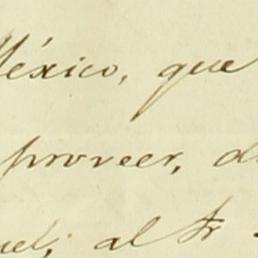 México, que
proveer, d
uel; al Sr